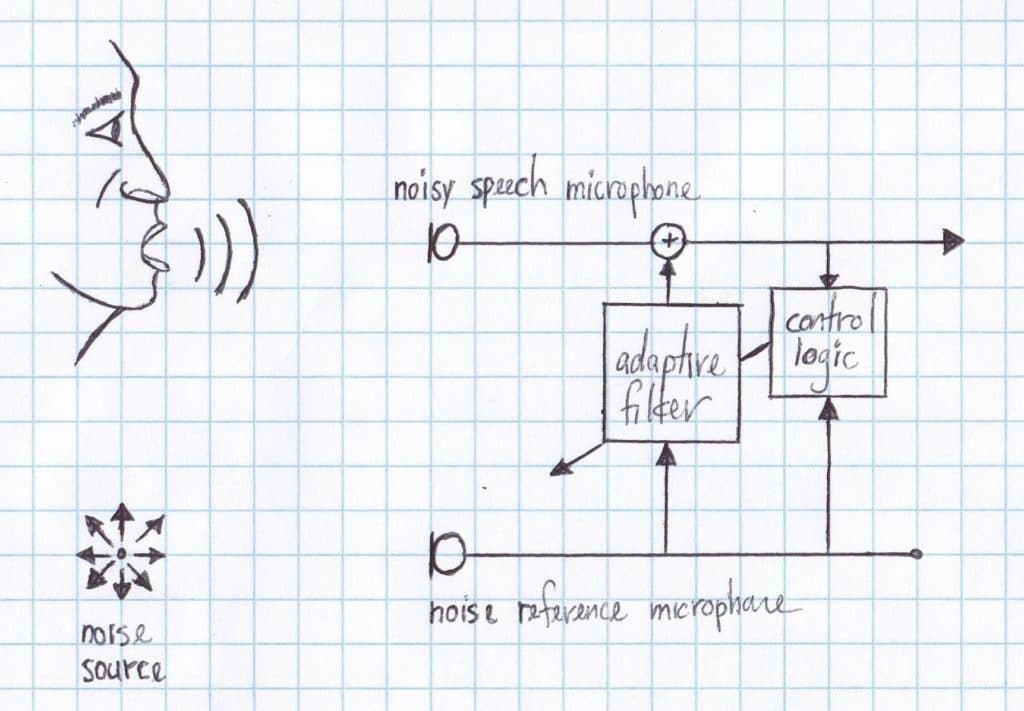 noisy speech microphone
+
adaptive
filter
control
logic
noise reference microphone
noise
source